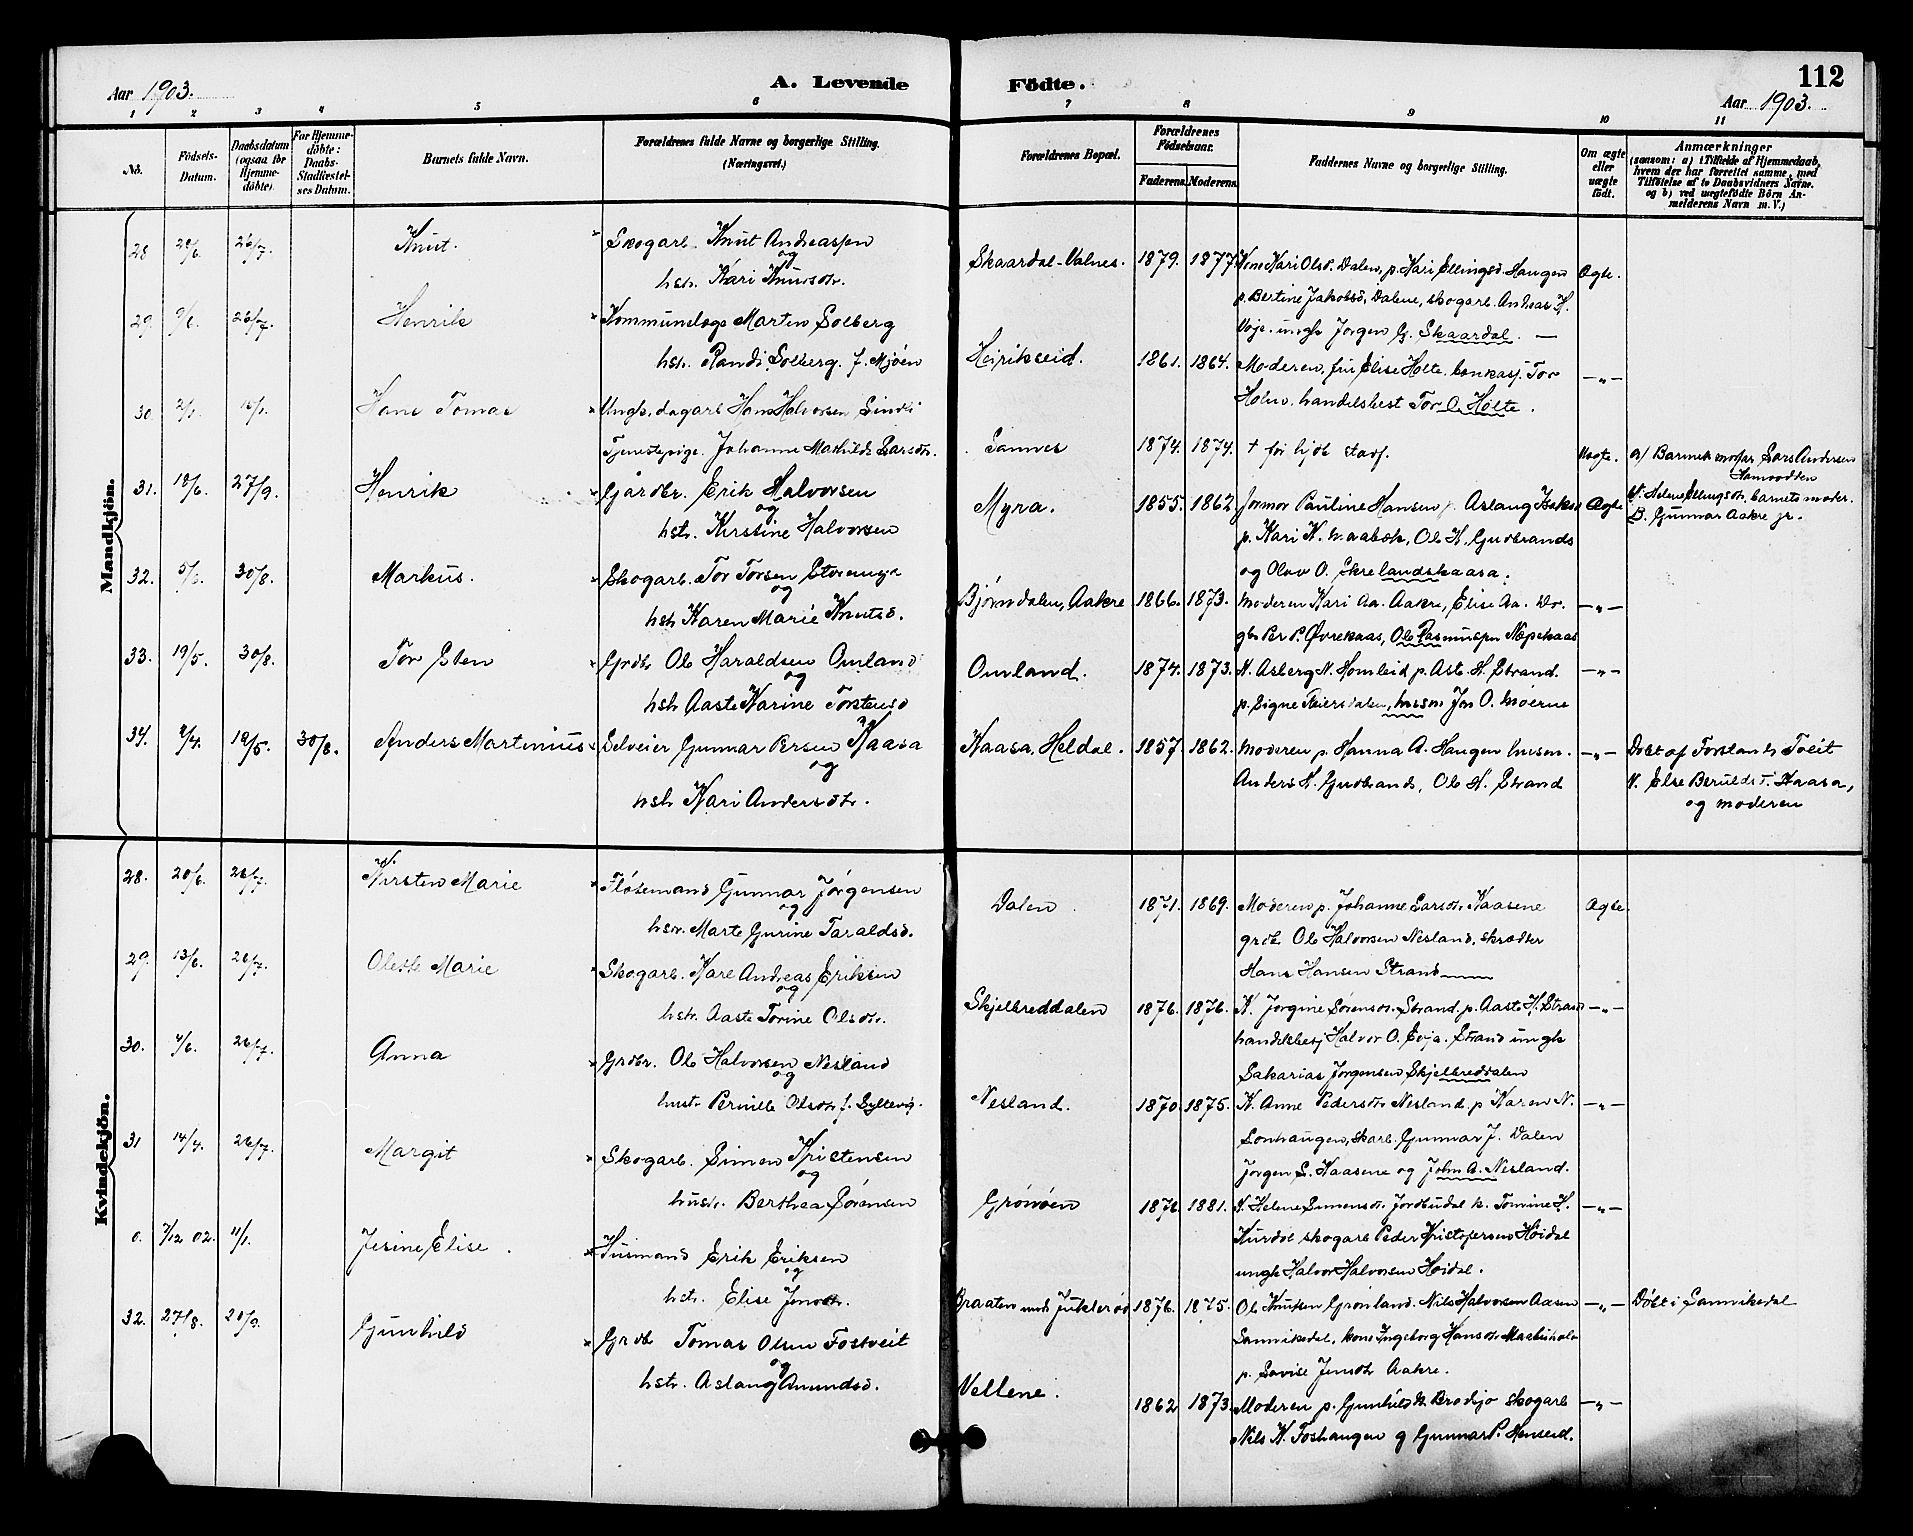 112
Aar 1903.
A. Levende Födte.
Aar 1903.
1 2 3 4 5 6 7 8 9 10 11
No.
Födsels-Datum.
Daabsdatum (ogsaa for Hjemmedöbte).
For Hjemmedöbte: Daabs-Stadfæstelses Datum.
Barnets fulde Navn.
Forældrenes fulde Navne og borgerlige Stilling. (Næringsvei.)
Forældrenes Bopæl.
Forældrenes Födselsaar.
Faderens. Moderens.
Faddernes Navne og borgerlige Stilling.
Om ægte eller uægte födt.
Anmærkninger
(saasom: a) i Tilfælde af Hjemmedaab, hvem der har forrettet samme, med Tilföielse af to Daabsvidners Navne. og b) ved uægtefödte Börn Anmelderens Navn m. V.)
Mandkjön.
28 26/7. Knut. Skogarb. Knut Andreassen
og
hstr. Kari Knutsdtr.
Skaardal-Valnes. 1879. 1877. Kone Kari Olsd. Dalen, p. Kari Ellingsd. Haugen Ægte.
p. Bertine Jakobsd, Dalene, skogarb. Anders K.
ungk Jørgen G. Skaardal. —
29. 9/6. 26/7. Henrik Kommunelæge Marten Solberg
hstr. Randi Solberg f. Mjøen
Heirikseid. 1861. 1864. Moderen, fru Elise Holte. Tor
handelsbest Tor O. Holte.
30 Hans Tomas Ungk. dagarb Hans Halvorsen
Tjenestepige. Johanne Mathilde Larsdtr.
Sannes 1874. 1874. Uægte. a) Barnets morfar Lars Andersen
31. 18/6. 27/9. Henrik Gårdbr. Erik Halvorsen
og
hstr. Kirstine Halvorsen
Myra. 1855. 1862 Pauline Hansen p. Aslaug Ægte V. Helene Ellingsdtr. barnets moder.
p. Kari K. Ole H. Gudbrands B. Gunnar Aakre jr.
og Olav O. Ekrelandskaasa.
32. 30/8. Markus. Skogarb. Tor Torsen
og
hstr Karen Marie Knutsd.
Bjørndalen, Aakre 1866. 1873. Moderen Kari Aa. Aakre, Elise Aa. Do. —„—
gb Per P. Øvrekaas, Ole Rasmussen Næpekaas
33. 19/5. 30/8. Tor Sten Grdbr Ole Haraldsen Omland
og
hstr Aaste Karine Torstensd
Omland. 1874. 1873. K. Asberg N. Homleid p. Aste H. Strand. —„—
p. Signe Jon O. Moerne
34. 9/4. 19/5. 30/8. Anders Martinius Selveier Gunnar Persen Kaasa
og
hstr Kari Andersdtr.
Kaasa, Heldal. 1857. 1862. Moderen p. Hanna A. Haugen husm. —„— Døbt af Tveit
Anders H. Gudbrands, Ole H. Strand V. Else Kaasa,
og moderen
Kvindekjön.
28. 20/6. 26/7. Kirsten Marie Fløtemand Gunnar Jørgensen
og
hstr. Marte Gurine Taraldsd.
Dalen 1871. 1869. Moderen p. Johanne Larsdtr. Kaasene Ægte.
grdb. Ole Halvorsen Nesland, skrædder
Hans Hansen Strand
29. 13/6. 26/7. Olette Marie Skogarb. Kare Andreas Eriksen
og
hstr. Aaste Torine Olsdtr.
Skjelbreddalen 1876. 1876. K. Jorgine Sørensdtr. Strand. p. Aaste H. Strand —„—
handelsbesj Halvor O. Strand ungk
Sakarias Jørgensen Skjelbreddalen
30. 4/6. 26/7. Anna Grdbr. Ole Halvorsen Nesland
og
hustr. Pernille Olsdtr f. Syllevig.
Nesland. 1870. 1875. K. Anne Pedersdtr Nesland. p Karen N. —„—
skarb. Gunnar J. Dalen
Jørgen S. Kaasene og John A. Nesland.
31 14/4. 26/7. Margit Skogarb. Simen Kristensen
og
hustr. Berthea Sørensen
Grønøen 1876 1881. K. Helene Simensdtr Jordbudal k. Tomine H. —„—
Kurdøl skogarb Peder Kristofersen Høidal
ungk Halvor Halvorsen Høidal.
0. 7/12 02. 11/1. Jesine Elise. Husmand Erik Eriksen
og
hstr. Elise Jensdtr.
Braaten 1876. 1875. Ole Knutsen Grønland. Nils Halvorsen Aasen —„— Døbt i Sannikedal
Sannikedal, kone Ingeborg Hansdtr
p. Lovise Jensdtr Aakre.
32. 27/8. 20/9. Gunhild Grdb Tomas Olsen Fostveit
og
hstr. Aslaug Amundsd.
Vellene. 1862 1873. Moderen p. Gunhild K. Brødsjø skogarb —„—
Nils K. Foshaugen g Gunnar P. Henseid.